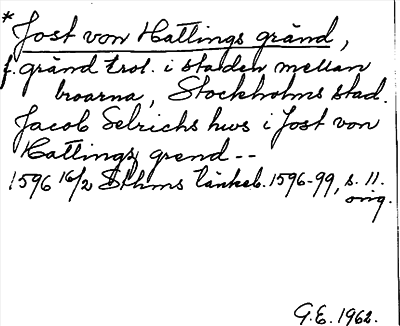 *Jost von Hattings gränd,
f. gränd trol. i staden mellan
broarna, Stockholms stad.
Jacob Selrichs hws i Jost von
Hattings grend--
1596 16/2 Sthms tänkeb. 1596-99, s. 11.
orig.
G.E. 1962.